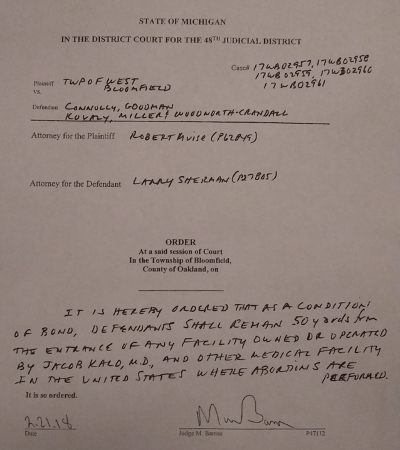 STATE OF MICHIGAN
IN THE DISTRICT COURT FOR THE 48TH JUDICIAL DISTRICT
Case# 17WB02957, 17WB02958
17WB02959, 17WB02960
17WB02961
Plaintiff TWP OF WEST
BLOOMFIELD
vs.
Defendant CONNOLLY, GOODMAN
KOVALY, MILLER, WOODWORTH-CRANDALL
Attorney for the Plaintiff ROBERT (P62849)
Attorney for the Defendant LARRY SHERMAN (P27805)
ORDER
At a said session of Court
In the Township of Bloomfield,
County of Oakland, on
IT IS HEREBY ORDERED THAT AS A CONDITION
OF BOND, DEFENDANTS SHALL REMAIN 50 yards from
THE ENTRANCE OF ANY FACILITY OWNED OR OPERATED
BY JACOB KALO, M.D., AND OTHER MEDICAL FACILITY
IN THE UNITED STATES WHERE ABORTINS ARE
PERFORMED.
It is so ordered.
2.21.18
Date
Judge M. Barron P47112